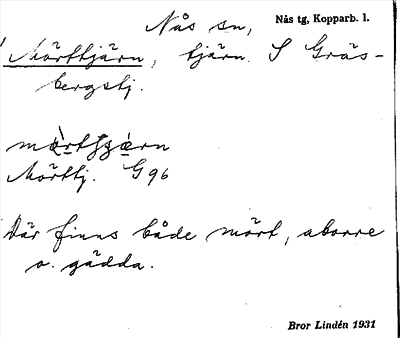 Nås sn, Nås tg, Kopparb. l.
Mörttjärn, tjärn. S Gräs-
bergstj.
Mörttj. G96
Där finns både mört, aborre
o. gädda.
Bror Lindén 1931